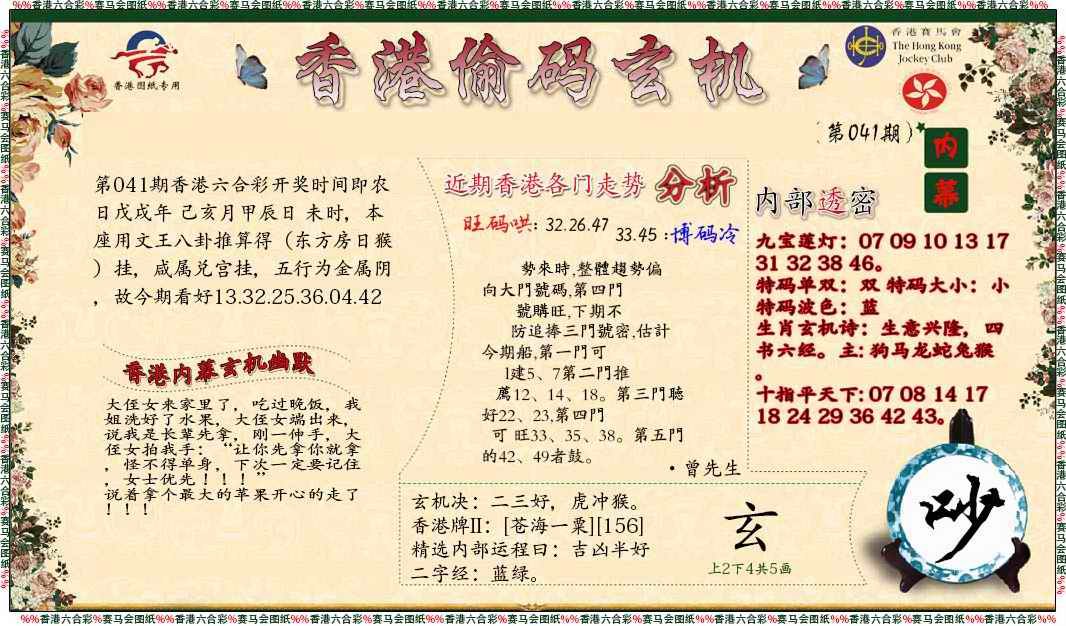 %%香港六合彩%赛马会图纸%%香港六合彩%赛马会图纸%%香港六合彩%赛马会图纸%%香港六合彩%赛马会图纸%%香港六合彩%赛马会图纸%%香港六合彩%赛马会图纸%%香港六合彩%%
香港图纸专用
香港偷码玄机
香港賽馬會
The Hong Kong
Jockey Club
（第041期）
内幕
第041期香港六合彩开奖时间即农
日戊戌年 己亥月甲辰日 未时，本
座用文王八卦推算得（东方房日猴
）挂，咸属兑宫挂，五行为金属阴
，故今期看好13.32.25.36.04.42
香港内幕玄机幽默
大侄女来家里了，吃过晚饭，我
姐洗好了水果，大侄女端出来，
说我是长辈先拿，刚一伸手，大
侄女拍我手：“让你先拿你就拿
，怪不得单身，下次一定要记住
，女士优先！！！”
说着拿个最大的苹果开心的走了
！！！
近期香港各门走势 分析
旺码哄: 32.26.47
33.45 :博码冷
勢來時,整體趨勢偏
向大門號碼,第四門
號購旺,下期不
防追捧三門號密,估計
今期船,第一門可
l建5、7第二門推
薦12、14、18。第三門聴
好22、23,第四門
可 旺33、35、38。第五門
的42、49者鼓。
·曾先生
内部透密
九宝莲灯：07 09 10 13 17
31 32 38 46。
特码单双：双 特码大小：小
特码波色：蓝
生肖玄机诗：生意兴隆，四
书六经。主: 狗马龙蛇兔猴
。
十指平天下: 07 08 14 17
18 24 29 36 42 43。
玄机决：二三好，虎冲猴。
香港牌II：[苍海一粟][156]
精选内部运程曰：吉凶半好
二字经：蓝绿。
玄
上2下4共5画
吵
%%香港六合彩%赛马会图纸%%香港六合彩%赛马会图纸%%香港六合彩%赛马会图纸%%香港六合彩%赛马会图纸%%香港六合彩%赛马会图纸%%香港六合彩%赛马会图纸%%香港六合彩%%